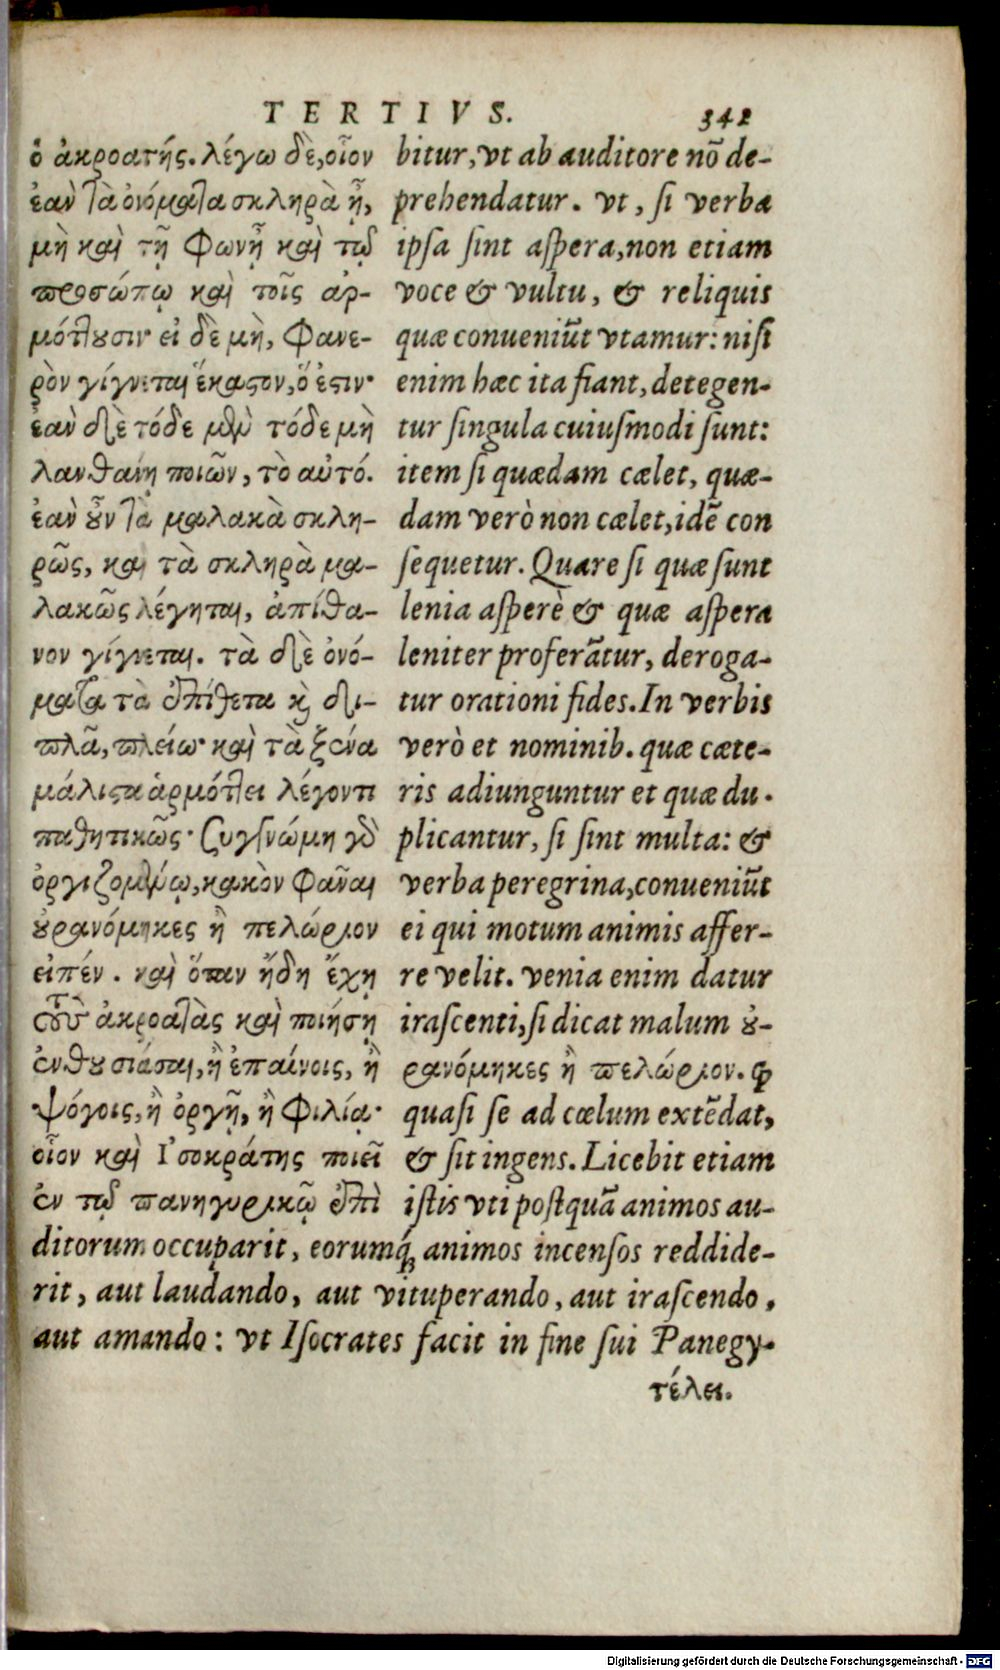 TERTIVS.
342
ὁ ἀκροατής. λέγω δὲ, οἷον
ἐὰν τὰ ὀνόματα σκληρὰ ᾖ,
μὴ καὶ τῇ φωνῇ καὶ τῷ
προσώπῳ καὶ τοῖς ἁρ-
μόττουσιν· εἰ δὲ μὴ, φανε-
ρὸν γίγνεται ἕκαστον, ὅ ἐστιν·
ἐὰν δὲ τόδε μὲν τόδε μὴ
λανθάνῃ ποιῶν, τὸ αὐτό.
ἐὰν οὖν τὰ μαλακὰ σκλη-
ρῶς, καὶ τὰ σκληρὰ μα-
λακῶς λέγηται, ἀπίθα-
νον γίγνεται. τὰ δὲ ὀνό-
ματα τὰ ἐπίθετα καὶ δι-
πλᾶ, πλείω· καὶ τὰ ξένα
μάλιστα ἁρμόττει λέγοντι
παθητικῶς· συγγνώμη γὰρ
ὀργιζομένῳ, κακὸν φᾶναι
οὐρανόμηκες ἢ πελώριον
εἰπέν. καὶ ὅταν ἤδη ἔχῃ
τοὺς ἀκροατὰς καὶ ποιήσῃ
ἐνθουσιάσαι, ἢ ἐπαίνοις, ἢ
ψόγοις, ἢ ὀργῇ, ἢ φιλίᾳ·
οἷον καὶ Ἰσοκράτης ποιεῖ
ἐν τῷ πανηγυρικῷ ἐπὶ
bitur, vt ab auditore nō de-
prehendatur. vt, si verba
ipsa sint aspera, non etiam
voce & vultu, & reliquis
quæ conueniūt vtamur: nisi
enim hæc ita fiant, detegen-
tur singula cuiusmodi sunt:
item si quædam cælet, quæ-
dam verò non cælet, idē con
sequetur. Quare si quæ sunt
lenia asperè & quæ aspera
leniter proferātur, deroga-
tur orationi fides. In verbis
verò et nominib. quæ cæte-
ris adiunguntur et quæ du-
plicantur, si sint multa: &
verba peregrina, conueniūt
ei qui motum animis affer-
re velit. venia enim datur
irascenti, si dicat malum ȣ-
ρανόμηκες ἢ πελώριον. ꝙ
quasi se ad cælum extēdat,
& sit ingens. Licebit etiam
istis vti postquā animos au-
ditorum occuparit, eorumq́; animos incensos reddide-
rit, aut laudando, aut vituperando, aut irascendo,
aut amando: vt Isocrates facit in fine sui Panegy-
τέλει.
Digitalisierung gefördert durch die Deutsche Forschungsgemeinschaft - DFG